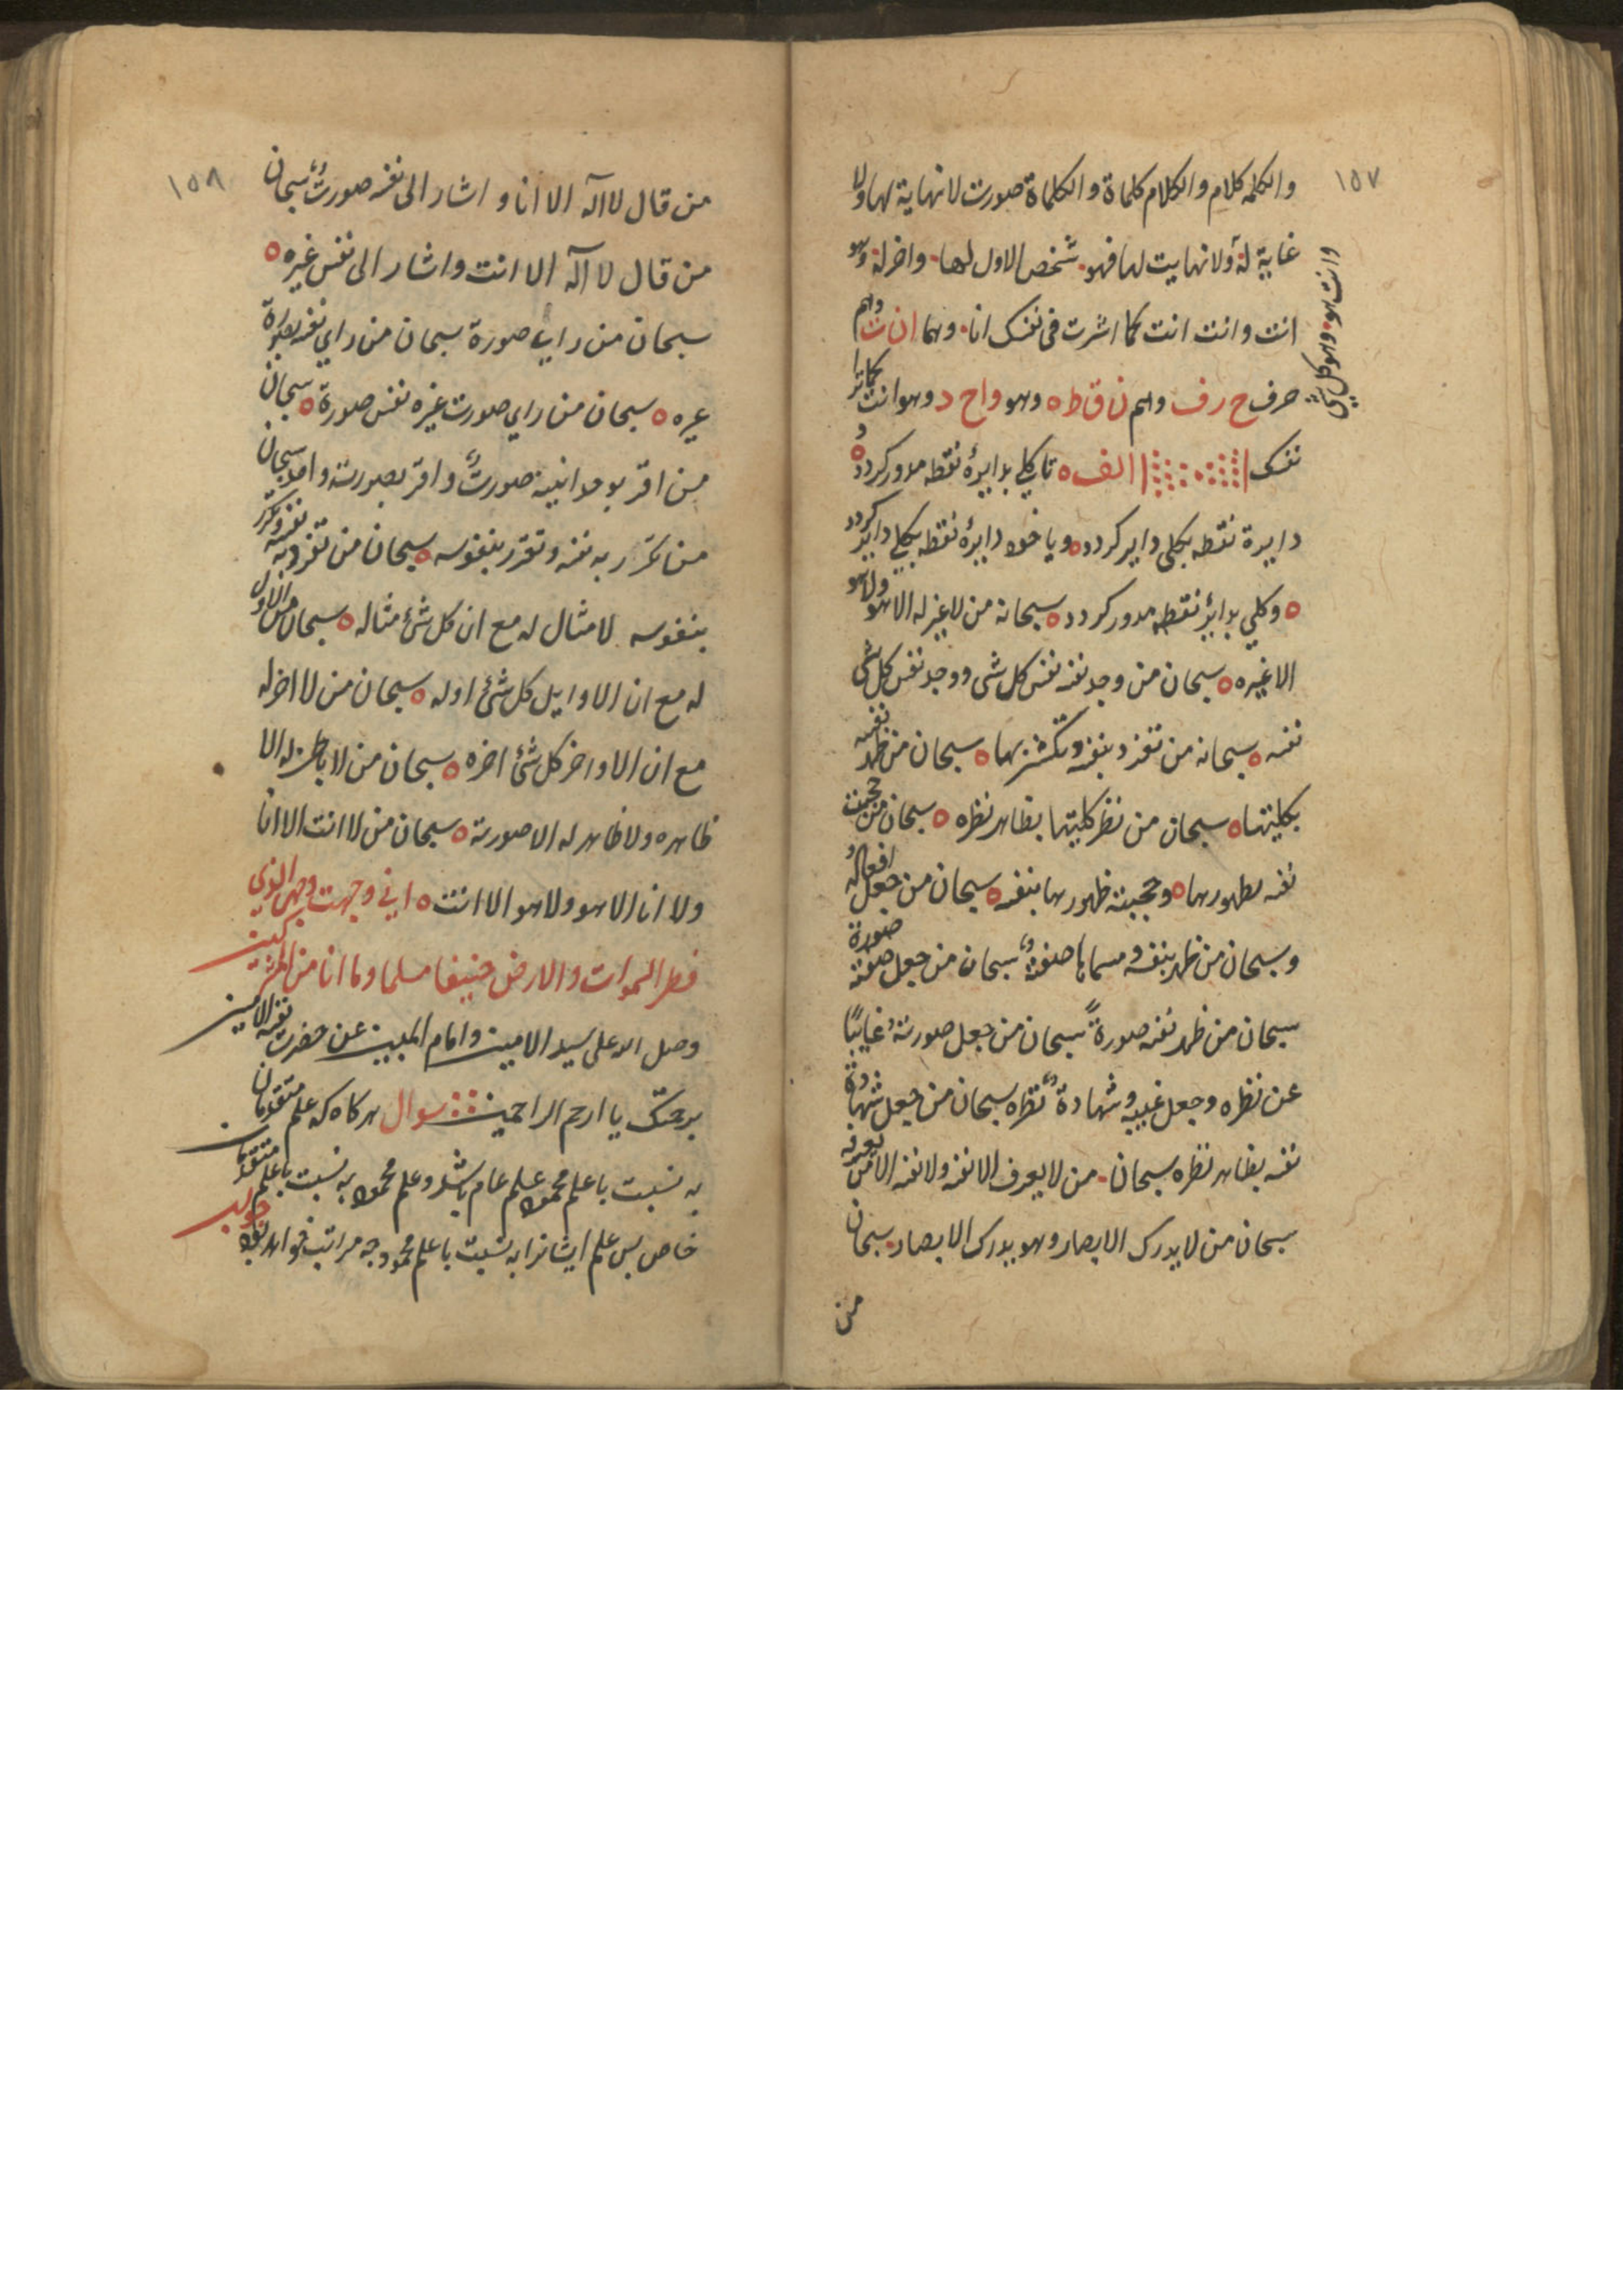 ١٥٧
والكلمه كلام والكلام كلماة والكلماة صورت لا نهاية لها ولا
غاية له ولا نهايت لها فهو شخص الاول لها واخر له وهو
انت وانت انت كما اشرت فی نفسک انا وهما ان ت وهم
وانت هو وهو كل شی
حرف ح ر ف وهم ن ق ط ه وهو واح د وهو انت كما ترا
نفسک الف ه تا بکلی بدایرهٔ نقطه مدور کردد و
دایرة نقطه بکلی دایر کردد ه ویا خود دایرهٔ نقطه بکلی دایر کردد
ه وکلی بدایرٔ نقطه مدور کردد ه سبحانه من لا غیر له الا هو ولا هو
الا غیره ه سبحان من وجد نفسه نفس كل شی ووجد نفس كل شی
نفسه ه سبحانه من تفرد بنفسه وتكثر بها ه سبحان من ظهر نفسه
بکلیتها ه سبحان من نظر کلیتها بظاهر نظره ه سبحان من حجبت
نفسه بظهورها ه وحجبته ظهورها بنفسه ه سبحان من جعل افعاله
وسبحان من ظهر بنفسه ومسماها صفةً سبحان من جعل صفته صورة
سبحان من ظهر نفسه صورةً سبحان من جعل صورته غایبًا
عن نظره وجعل غیبه وشهادة نظره سبحان من جعل شهادة
نفسه بظاهر نظره سبحان من لا یعرف الا نفسه ولا نفسه الا من یعرفه
سبحان من لا یدرک الابصار وهو یدرک الابصار سبحان
من
١٥٨
من قال لا اله الا انا واشار الی نفسه صورتً سبحان
من قال لا اله الا انت واشار الی نفس غیره ه
سبحان من رای صورة سبحان من رای نفسه بصورة
غیره ه سبحان من رای صورت غیره نفس صورة ه سبحان
من اقر بوحدانیته صورتً واقر بصورته واحد سبحان
من تکرر به نفسه وتقرر بنفوسه ه سبحان من تفرد به نفسه وتکرر
بنفوسه لا مثال له مع ان كل شیٔ مثاله ه سبحان من لا اول
له مع ان الاوایل كل شیٔ اوله ه سبحان من لا اخر له
مع ان الاواخر كل شیٔ اخره ه سبحان من لا باطن له الا
ظاهره ولا ظاهر له الا صورته ه سبحان من لا انت الا انا
ولا انا الا هو ولا هو الا انت ه انی وجهت وجهی للذی
فطر السموات والارض حنیفا مسلما وما انا من المشرکین
وصل الله علی سید الامین وامام المبین عن حضرت نفسه الامین
برحمتک یا ارحم الراحمین سوال هرکاه که علم متقدمان
به نسبت با علم محمود علم عام باشد وعلم محمود به نسبت با علم متقدمان
خاص پس علم ایشانرا به نسبت با علم محمود چه مراتب خواهد بود جواب